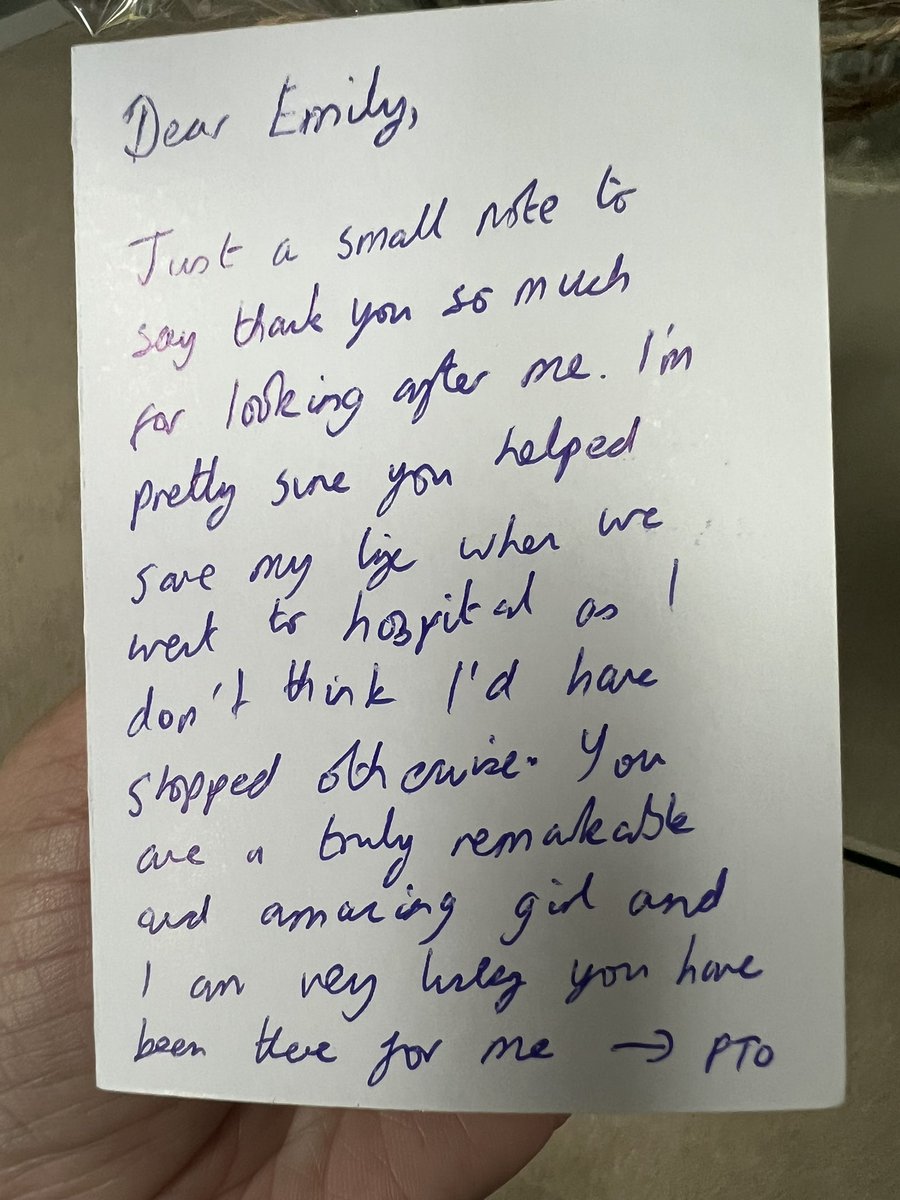 Dear Emily,
Just a small note to
say thank you so much
for looking after me. I'm
pretty sure you helped
save my life when we
went to hospital as I
don't think I'd have
stopped otherwise. You
are a truly remarkable
and amazing girl and
I am very lucky you have
been there for me → PTO